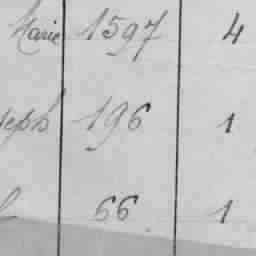 Marie 1597 4
seph 196 1
66 1